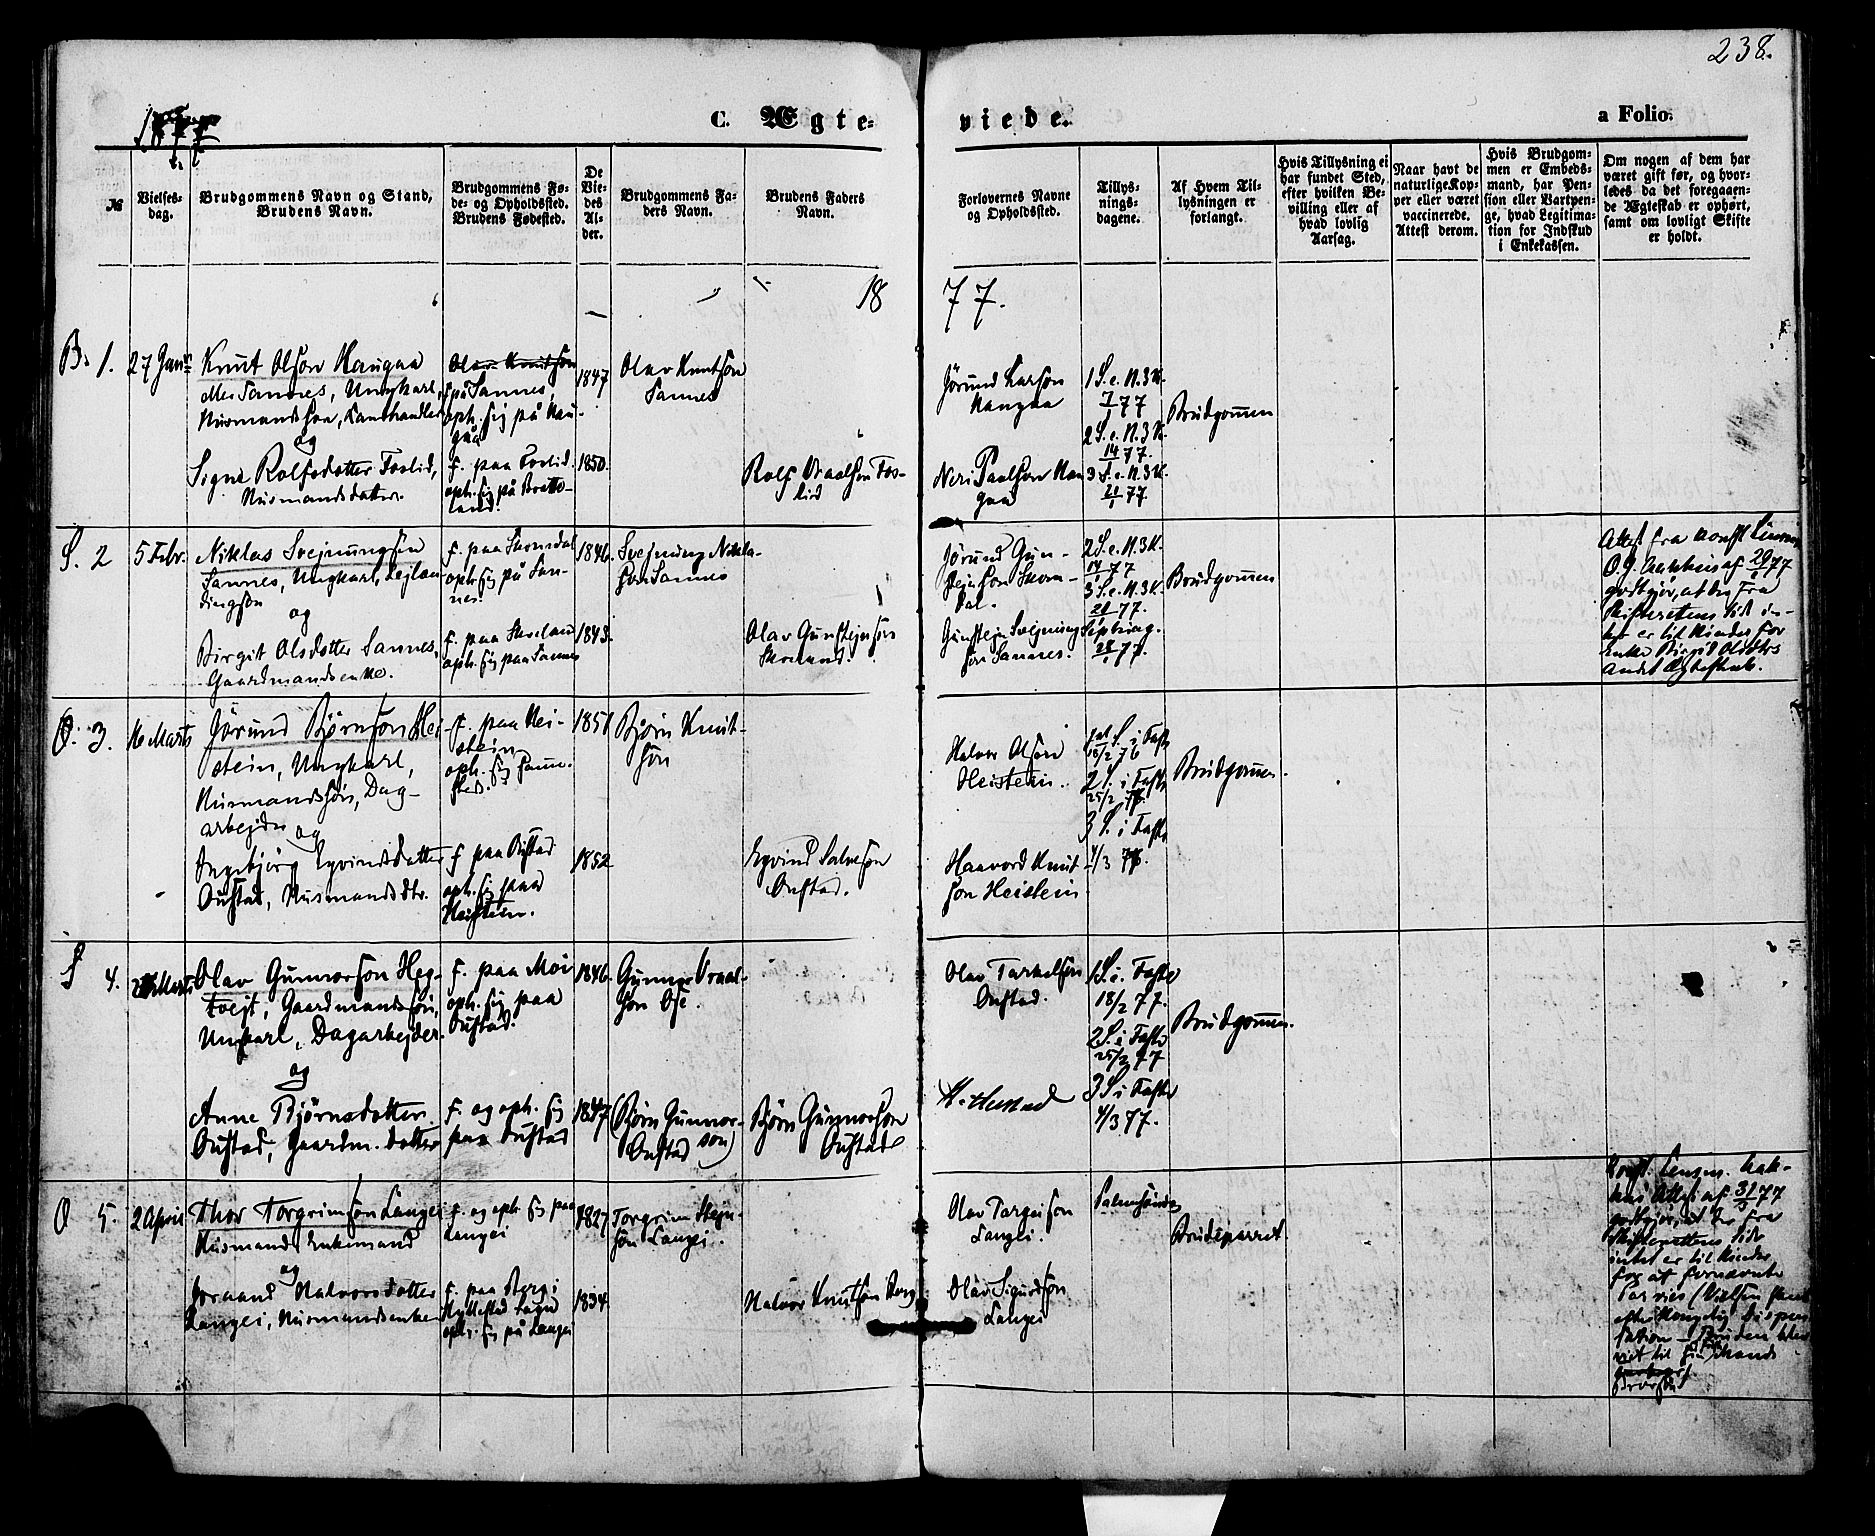 238.
1877
C. Ægte-
viede.
a Folio.
№
Vielses-
dag.
Brudgommens Navn og Stand,
Brudens Navn.
Brudgommens Fø-
de- og Opholdssted.
Brudens Fødested.
De
Vie-
des
Al-
der.
Brudgommens Fa-
ders Navn.
Brudens Faders
Navn.
Forlovernes Navne
og Opholdssted.
Tillys-
nings-
dagene.
Af Hvem Til-
lysningen er
forlangt.
Hvis Tillysning ei
har fundet Sted,
efter hvilken Be-
villing eller af
hvad lovlig
Aarsag.
Naar havt de
naturlige Kop-
per eller været
vaccinerede.
Attest derom.
Hvis Brudgom-
men er Embeds-
mand, har Pen-
sion eller Vartpen-
ge, hvad Legitima-
tion for Indskud
i Enkekassen.
Om nogen af dem har
været gift før, og hvor-
ledes da det foregaaen-
de Ægteskab er ophørt,
samt om lovligt Skifte
er holdt.
18
77.
B. 1.
27 Janr
Knut Olsøn Haugaa
Sannes, Ungkarl,
Husmandssøn,
og
Signe Rolfsdatter Foslid,
Husmandsdatter.
Olav Knutsøn
f. på Sannes,
oph. sig på Hau-
gaa
f. paa Foslid.
oph. sig på Brotte-
land.
1847
1850.
Olav Knutsøn
Sannes
Rolf Vraalsøn Fos-
lid
Jørund Larsøn
Haugaa
Neri Paalsøn Hau
gaa
1 S. e. H. 3 K.
7/1 77
2 S. e. H. 3 K.
14/1 77.
3 S. e. H. 3 K.
21/1 77
Brudgommen
S. 2
5 Febr.
Niklas Svejnungsøn
Sannes, Ungkarl, Lejlæn-
dingsøn
og
Birgit Olsdotter Sannes,
Gaardmandsenke.
f. paa Skomedal
oph. sig på San-
nes.
f. paa Skoeland
oph. sig paa Sannes
1846.
1843.
Svejnung Nikla-
søn Sannes
Olav Gunstejnsøn
Skoeland.
Jørund Gun-
stejnsøn Skom-
dal.
Gunstejn Svejnung
søn Sannes.
2 S. e. H. 3 K.
14/1 77
3 S. e. H. 3 K.
21/1 77.
28/1 77.
Brudgommen
Attest fra
af 29/1 77
godtgjør, at der fra
Skifterettens Side in-
tet er til Hinder for
Enke Birgit Olsdtrs
andet Ægteskab.
O. 3.
16 Marts
Jørund Bjørnsøn Hei-
stein, Ungkarl,
Husmandssøn, Dag-
arbejder
og
Ingebjørg Eyvindsdatter
Ouftad, Husmandsdtr.
f. paa Hei-
stein
oph. sig samme-
sted.
f. paa Oustad
oph. sig paa
Heistein.
1851
1852
Bjørn Knut-
søn
Eyvind Salvesøn
Oustad.
Halvor Olsøn
Heistein.
Haavord Knut-
søn Heistein
1st S. i Faste
18/2 76
2 S. i Faste
25/2 77.
3 S. i Faste
4/3 77.
Brudgommen.
S 4.
Marts
Olav Gunnarsøn Heg-
tvejt, Gaardmandssøn,
Ungkarl, Dagarbejder.
og
Anne Bjørnsdatter
Oustad, Gaardm. datter
f. paa Moi
oph. sig paa
Oustad.
f. og oph. sig
paa Oustad
1846.
1847
Gunnar Vraal-
søn Ose.
(Bjørn Gunnar-
Oustad søn)
Bjørn Gunnarsøn
Oustad
Olav Tarkelsøn
Oustad.
1 S. i. Faste
18/2 77.
2 S. i Faste
25/2 77
3 S i Faste
4/3 77.
Brudgommen.
O 5.
2 April
Thor Torgrimsøn Langei
Husmand, Enkemand
og
Joraand Halvorsdatter
Langei, Husmandsenke
f. og oph. sig paa
Langei
f. paa Berg i
Hyllestad Sogn
oph. sig på Langei
1827
1834
Torgrim Stejn-
søn Langei.
Halvor Knutsøn Berg
Olav Targeisøn
Langei.
Olav Sigurdsøn
Langei
Palmesøndag
Brudeparret.
Attest af 31/3 77
godtgjør, at der fra
Skifterettens Side
intet er til Hinder
for at fornævnte
Par vies
efter Kongelig Dispen
sation